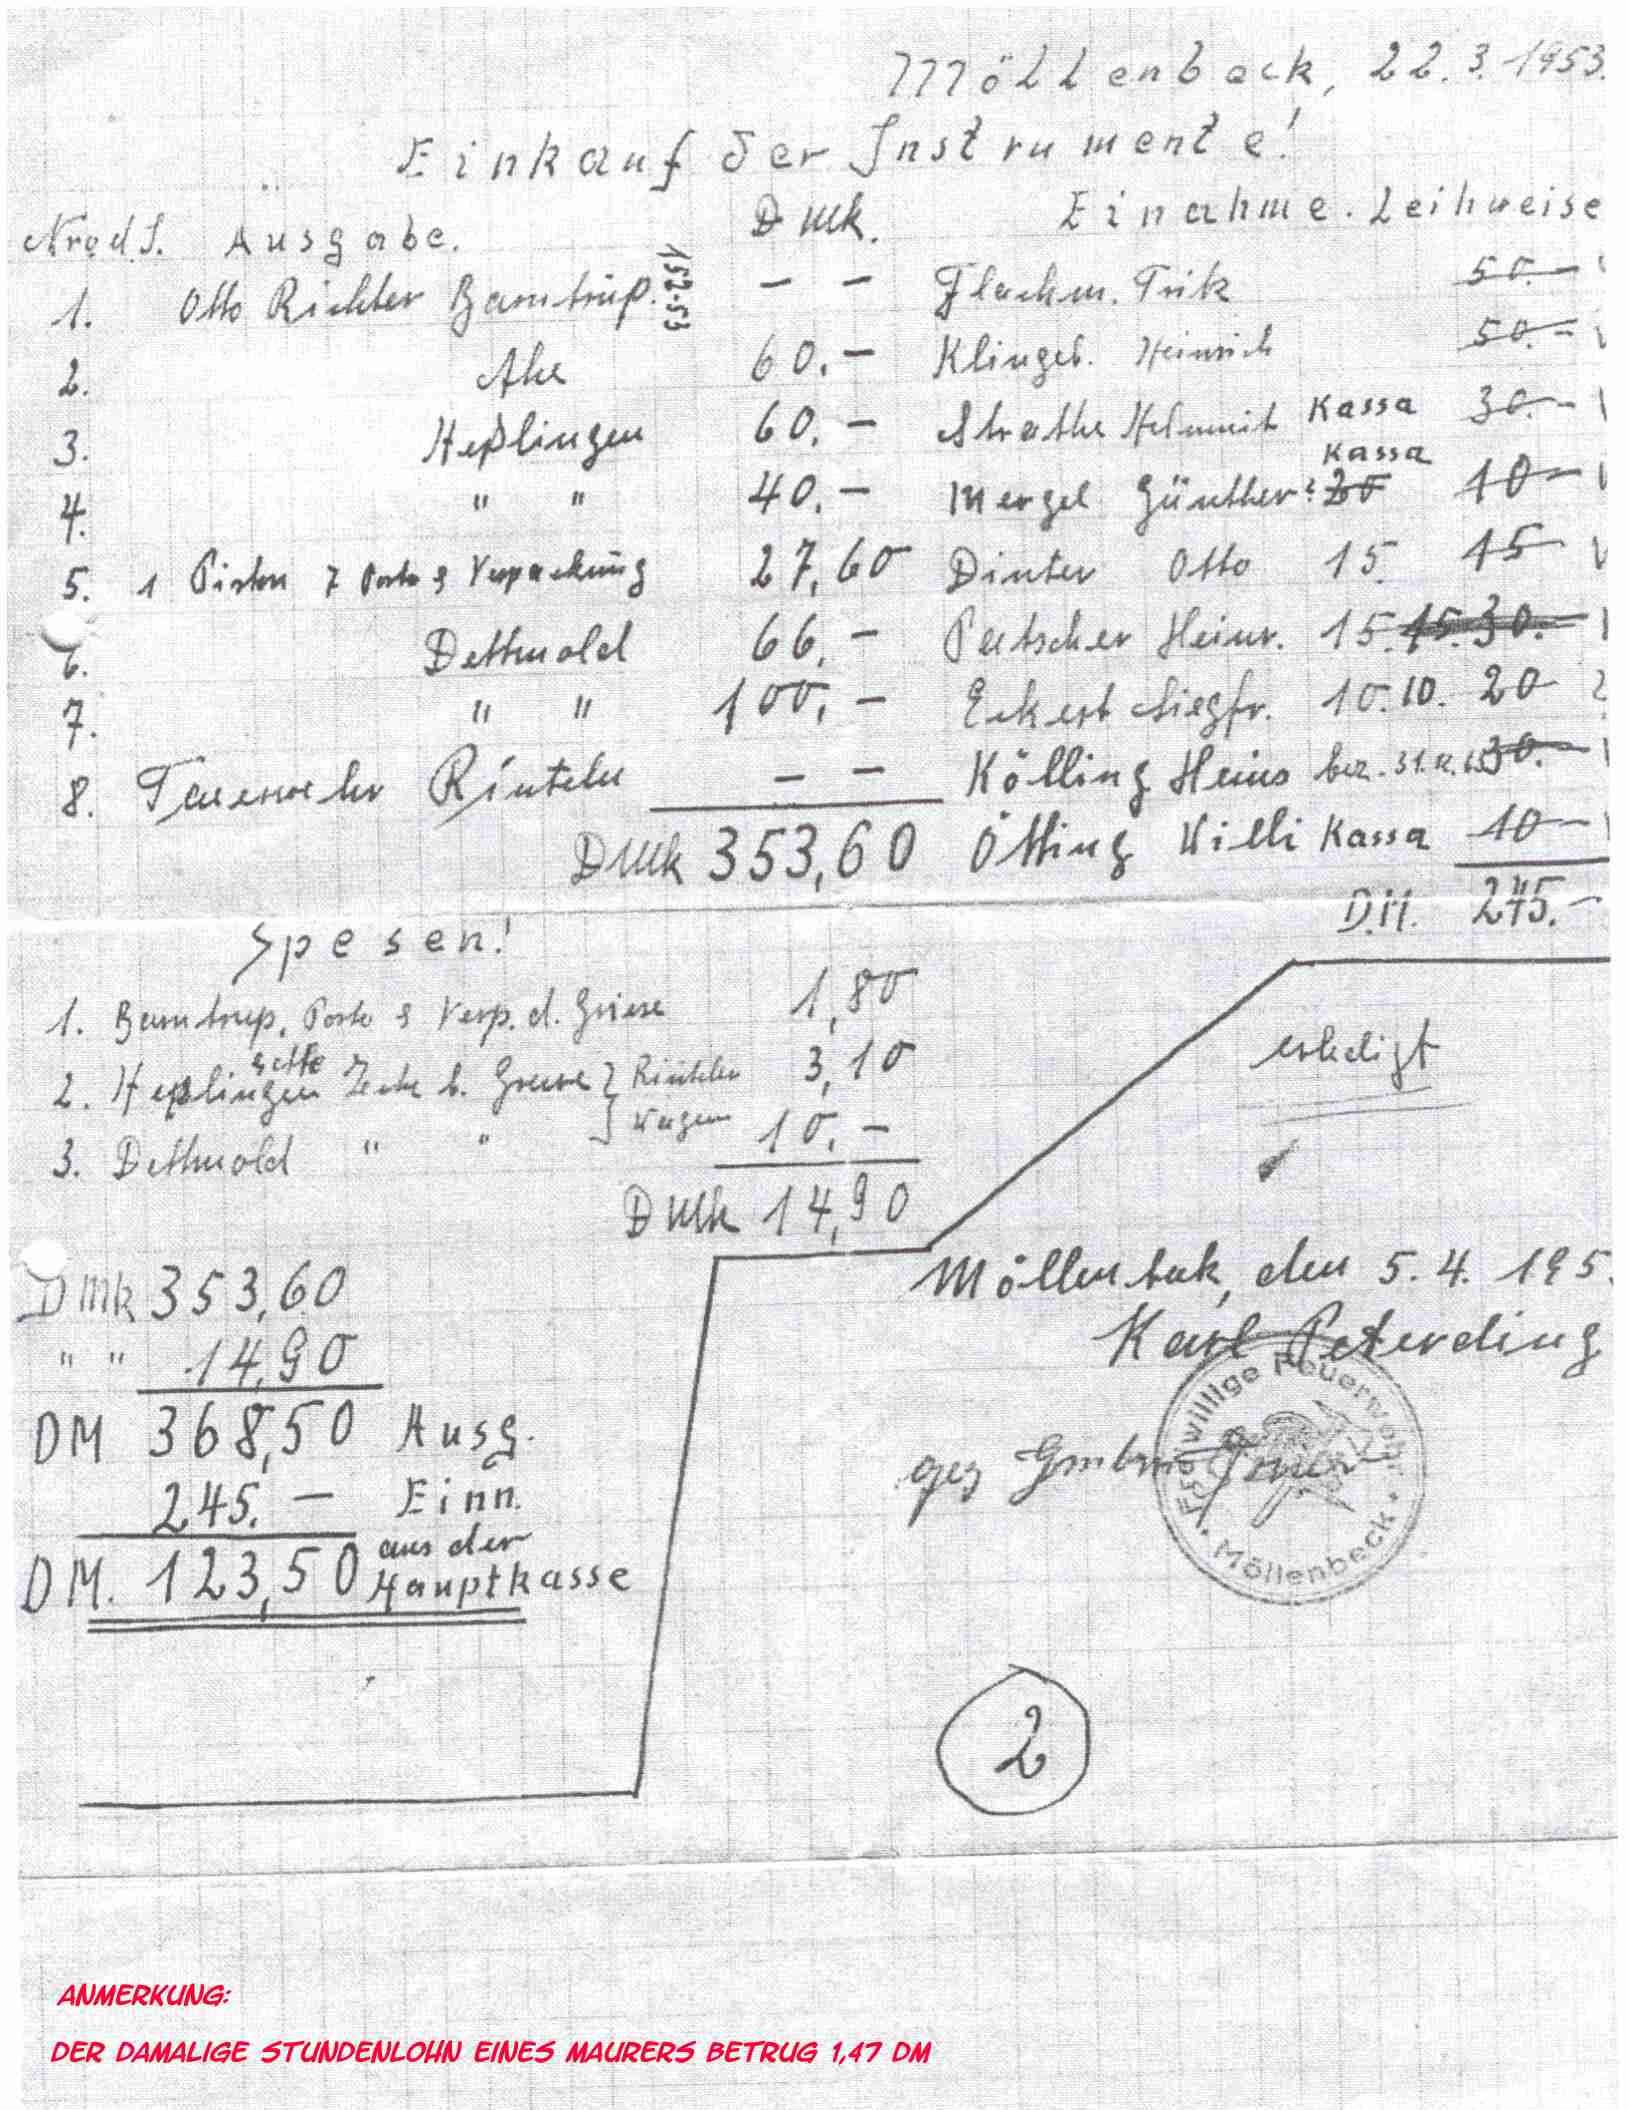 Möllenbeck, 22.3.1953.
Einkauf der Instrumente!
Nr. d. I. Ausgabe. DMk. Einnahme. Leihweise
1. Otto Richter Barntrup. 15.2.53 – – Flachm. Fritz 50.–
2. Ahe 60.– Klingeb. Heinrich 50.–
3. Heßlingen 60.– Strathe Helmut Kassa 30.–
4. " " 40.– Mergel Günther Kassa 20 10–
5. 1 Piston 7 Porto & Verpackung 27,60 Dinter Otto 15. 15
6. Dettmold 66.– Patscher Heinr. 15. 15. 30.–
7. " " 100.– Eckert Siegfr. 10. 10. 20
8. Feuerwehr Rinteln – – Kölling Heins bez. 31.12. 30.–
DMk 353,60 Ötting Willi Kassa 10–
D.M. 245.–
Spesen!
1. Barntrup, Porto & Verp. d. Griese 1,80
2. Heßlingen Rinteln 3,10
3. Dettmold " " Wagen 10.–
DMk 14,90
erledigt
DMk 353,60
" " 14,90
DM 368,50 Ausg.
245.– Einn.
DM. 123,50 aus der Hauptkasse
Möllenbek, den 5.4.195
Karl Peterding
gez
Freiwillige Feuerwehr
Möllenbeck
2
ANMERKUNG:
DER DAMALIGE STUNDENLOHN EINES MAURERS BETRUG 1,47 DM